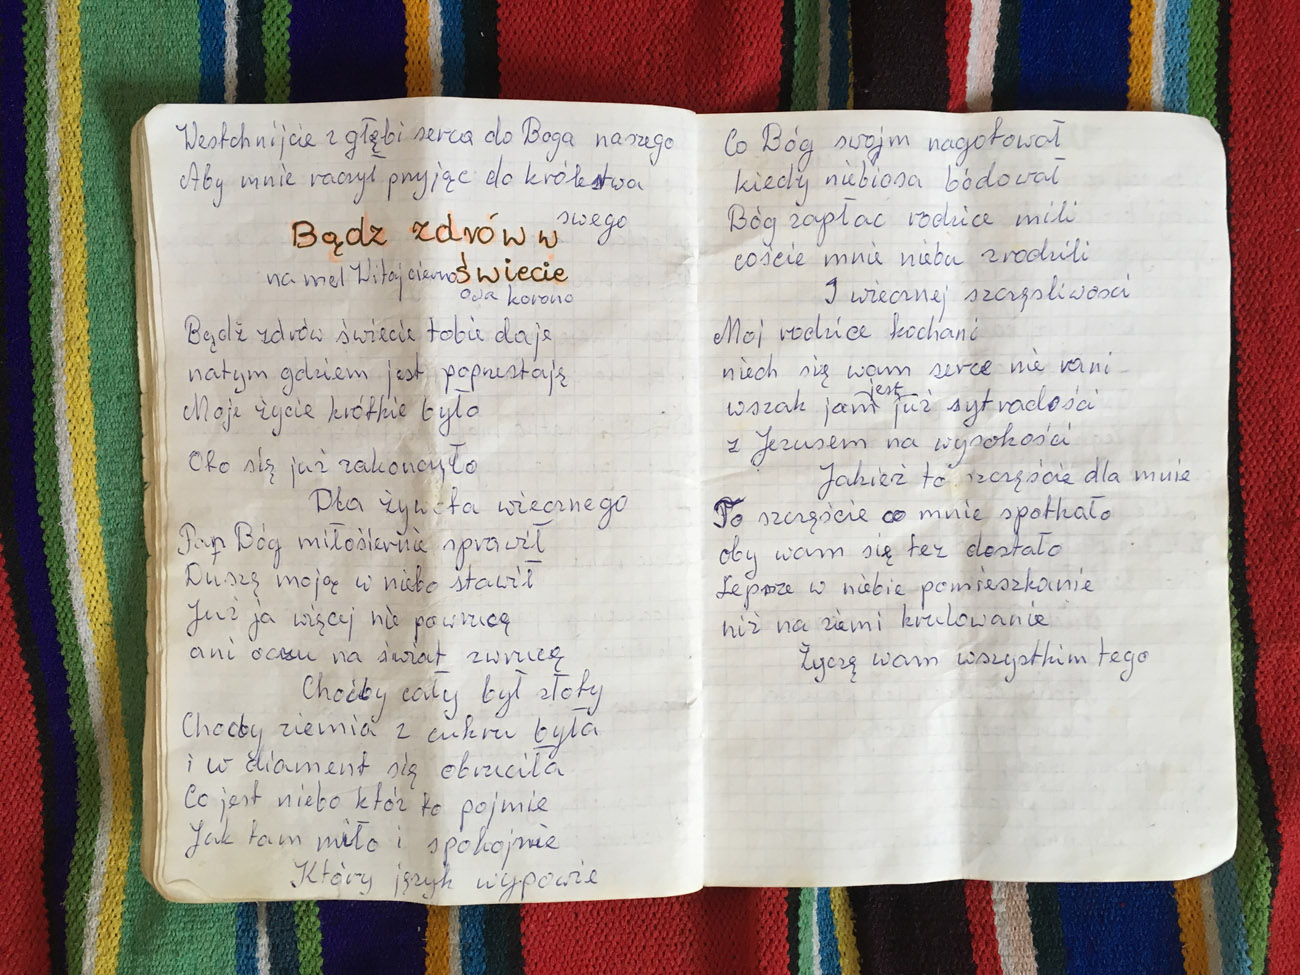 Westchnijcie z głębi serca do Boga naszego
Aby mnie raczył pryjąc do królestwa
swego
Bądz zdrów w
świecie
na mel Witaj cierno
owa korono
Bądź zdrów świecie tobie daje
natym gdziem jest poprestają
Moje życie krótkie było
Oto się już zakonczyło
Dla żywota wiecznego
Pan Bóg miłósiernie sprawił
Duszę moją w niebo stawił
Już ja więcej nie pawrucę
ani oczu na świat zwrucę
Choćby cały był złoty
Choćby ziemia z cukru była
i w diament się obruciła
Co jest niebo któż to pojmie
Jak tam miło i spokojnie
Który język wypowie
Co Bóg swojm nagotował
kiedy niebiosa bódował
Bóg zapłać rodzice mili
coście mnie niebu zrodzili
I wiecznej szczęsliwosci
Moj rodzice kochani
niech się wam serce nie rani
wszak jam jest już sytradości
z Jezusem na wysokości
Jakież to szczęście dla mnie
To szczęście co mnie spotkało
oby wam się też dostało
Lepsze w niebie pomieszkanie
niż na ziemi krulowanie
Życzę wam wszystkim tego